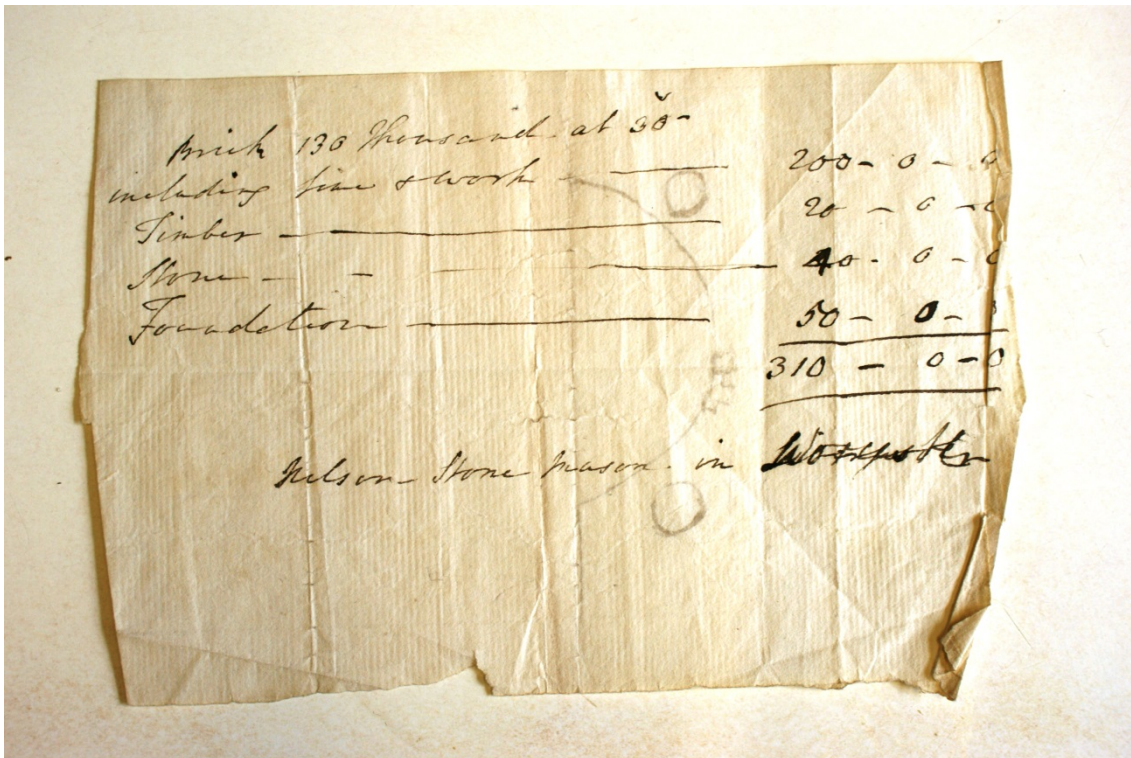 Brick 130 Thousand at 30 -
including lime & work - — 200 - 0 - 0
Timber - — 20 - 0 - 0
Stone - - — 40 - 0 - 0
Foundation — 50 - 0 -
310 - 0 - 0
Nelson - Stone Mason - in